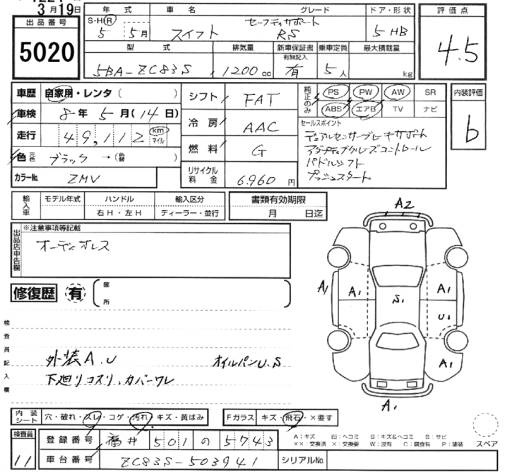 3月19日
出品番号
5020
S・H・R 年式 車名 グレード ドア・形状
5年 5月 スイフト セーフティサポート RS 5HB
型式 排気量 新車保証書 有無記入 乗車定員 最大積載量
5BA-ZC83S 1200cc 有 5人 kg
評価点
4.5
車歴 自家用・レンタ( )
車検 8年 5月(14日)
走行 49,112 km マイル
色 元色 ブラック →(替 )
カラーNo. ZMV
シフト FAT
冷房 AAC
燃料 G
リサイクル料金 6,960円
純正のみ PS PW AW SR
ABS エアB TV ナビ
セールスポイント
デュアルセンサーブレーキサポート
アダプティブクルーズコントロール
パドルシフト
プッシュスタート
内装評価
b
輸入車 モデル年式 ハンドル 輸入区分
年 右H・左H ディーラー・並行
書類有効期限
月 日迄
出品店申告欄
※注意事項等記載
オーディオレス
修復歴 有 箇所
検査員記入欄
外装A.U オイルパンU.S
下廻りコスリ、カバーワレ
A2
A1 A1 S1 A1 A1
U1
A1
内装シート 穴・破れ・スレ・コゲ・汚れ・キズ・黄ばみ Fガラス キズ・飛石・×要す
検査員 11
登録番号 福井 501 の 5743
車台番号 ZC83S-503941 シリアルNo.
A:キズ U:ヘコミ B:キズ&ヘコミ S:サビ
××:交換済 X:交換要 W:波有 C:腐食有 P:塗装
スペア